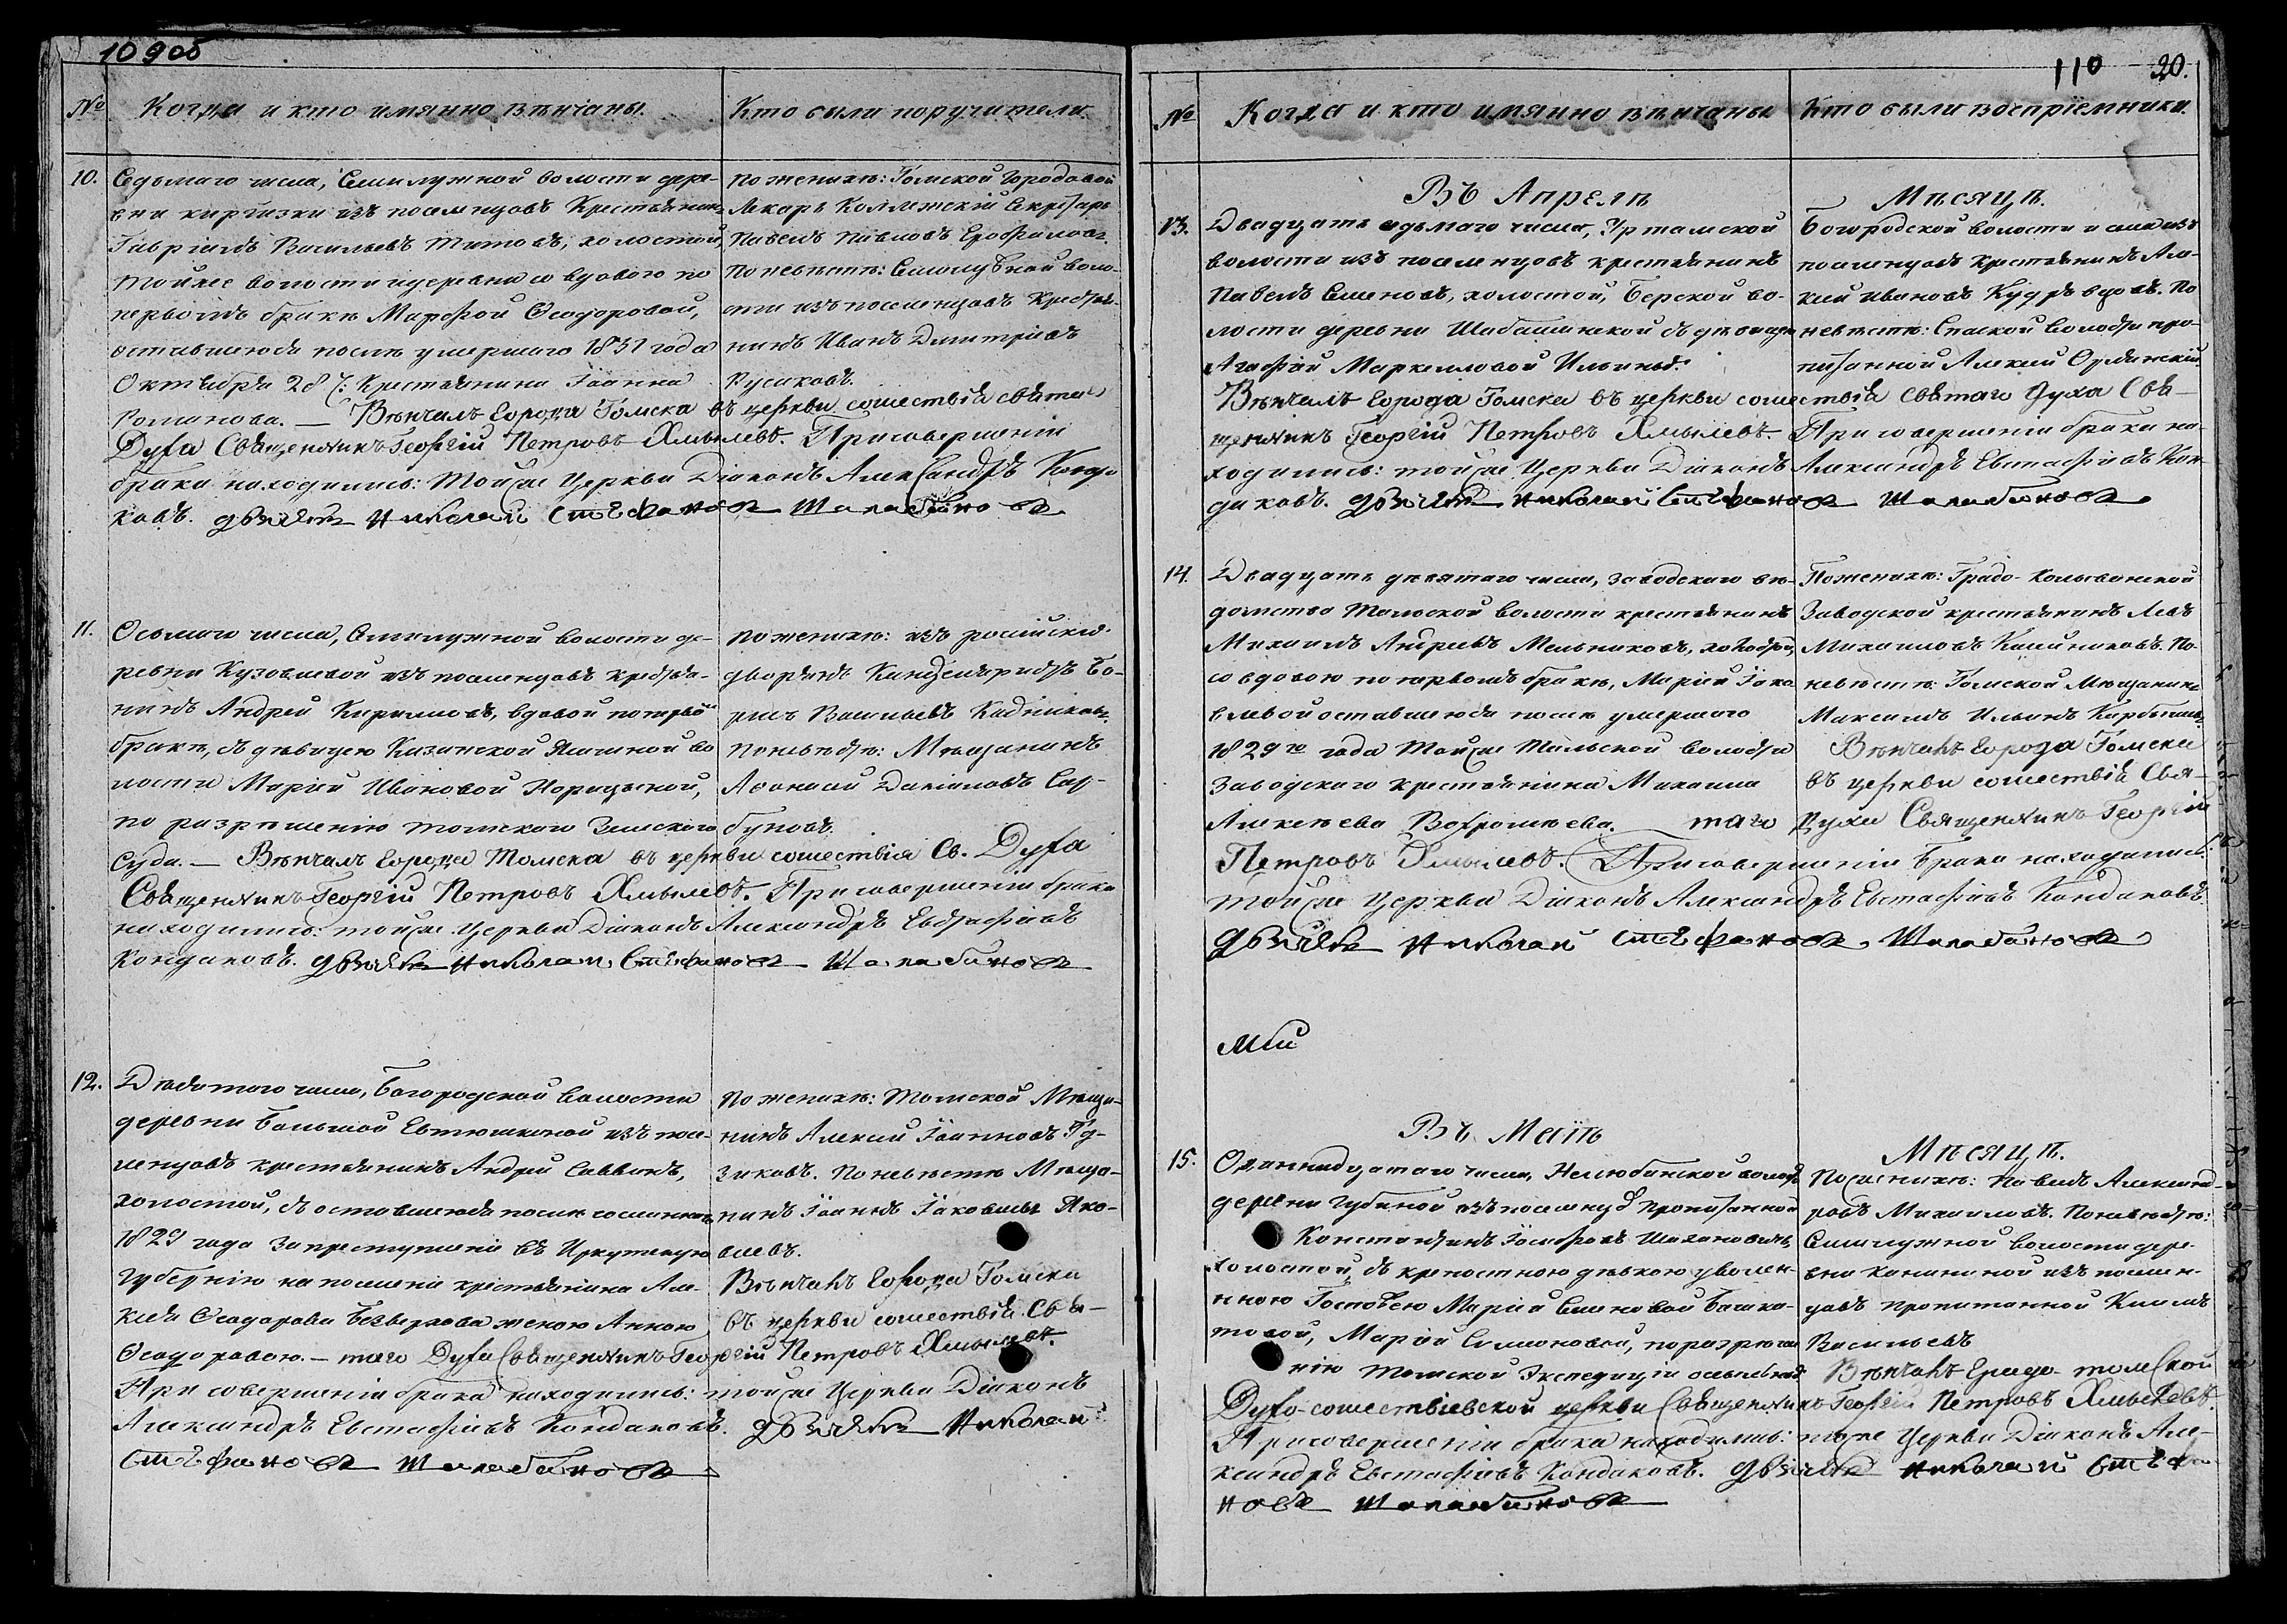 109об
№
Когда и кто имянно вѣнчаны.
Кто были поручители.
10.
Седьмаго числа, Семилужной волости дере-
вни киргизки изъ поселнцовъ Крестьянинъ
Гавріилъ Васильевъ Титовъ, холостой,
тойже волости и деревни со вдовою по
первомъ бракѣ Марѳой Ѳеодоровой,
оставшеюся послѣ умершаго 1831 года
Октября 28 Крестьянина Іоанна
Романова. — Вѣнчалъ города Томска въ церкви сошествія святаго
Духа Священникъ Георгій Петровъ Хмылевъ. При совершеніи
брака находились: тойже Церкви Діаконъ Александръ Конда
ковъ. дьячекъ Николай Стефановъ Шалабановъ
По женихѣ: Томской Городовой
Лекарь Коллежскій Секретарь
Павелъ Павловъ Ерофѣловъ.
По невѣстѣ: Семилужной воло-
сти изъ поселнцовъ Крестья-
нинъ Иванъ Дмитріевъ
Русаковъ.
11.
Осьмаго числа, Семилужной волости де-
ревни Кузовлевой изъ поселнцовъ крестья-
нинъ Андрей Кириловъ, вдовой по первом
бракѣ, съ дѣвицею Казанской Ямшной во
лости Маріей Ивановой Норицыной,
по разрѣшенію томскаго Земскаго
Суда. — Вѣнчалъ города Томска въ церкви сошествія Св. Духа
Священникъ Георгій Петровъ Хмылевъ. При совершеніи брака
находились: тойже Церкви Діаконъ Александръ Евстафіевъ
Кондаковъ. дьячекъ Николай Стефановъ Шалабановъ
По женихѣ: изъ россійскихъ
дворянъ Канцеляристъ Бо-
рисъ Васильевъ Кадниковъ.
По невѣстѣ: Мѣщанинъ
Аѳанасій Даниловъ Сар-
буновъ.
12.
Девятаго числа, Богородской волости
деревни Большой Евтюшкиной изъ посе-
ленцовъ крестьянинъ Андрей Саввинъ,
холостой, съ оставшеюся послѣ сосланнаго
1829 года за преступленіе въ Иркутскую
Губернію на поселеніе крестьянина Але-
ксѣя Ѳеодорова Безверхова женою Анною
Ѳеодоровою. — таго Духа Священникъ Георгій Петровъ Хмылевъ.
При совершеніи брака находились: тойже Церкви Діаконъ
Александръ Евстафіевъ Кондаковъ. дьячекъ Николай
Стефановъ Шалабановъ
По женихѣ: томской Мѣща-
нинъ Алексѣй Іоанновъ Гу-
зиковъ. По невѣстѣ Мѣща-
нинъ Іоаннъ Іаковлевъ Яко-
влевъ.
Вѣнчалъ города Томска
въ церкви сошествія Свя-
110 20.
№
Когда и кто имянно вѣнчаны
Кто были воспріемники.
Въ Апрелѣ Мѣсяцѣ.
13.
Двадцать седьмаго числа, Уртамской
волости изъ поселенцовъ крестьянинъ
Павелъ Семеновъ, холостой, Берской во-
лости деревни Шабашинской съ дѣвицею
Агафіей Маркелловой Ильиныхъ.
Вѣнчалъ города Томска въ церкви сошествія Святаго Духа Свя-
щенникъ Георгій Петровъ Хмылевъ. При совершеніи брака на-
ходились: тойже Церкви Діаконъ Александръ Евстафіевъ Кон-
даковъ. дьячекъ Николай Стефановъ Шалабановъ.
Богородской волости и села изъ
поселенцовъ крестьянинъ Але-
ксѣй Ивановъ Кудрявцовъ. По
невѣстѣ: Спаской волости про-
питанной Алексѣй Сулинскій
14.
Двадцать девятаго числа, заводскаго вѣ-
домства Тальской волости крестьянинъ
Михаилъ Андреевъ Мельниковъ, холостой,
со вдовою по первомъ бракѣ, Маріей Іако
влевой оставшеюся послѣ умершаго
1829го года Тойже Тальской волости
Заводскаго крестьянина Михаила
Алексѣева Вахромѣева. — таго Духа Священникъ Георгій
Петровъ Хмылевъ. При совершеніи брака находились:
тойже Церкви Діаконъ Александръ Евстафіевъ Кондаковъ.
дьячекъ Николай Стефановъ Шалабановъ
По женихѣ: Градо-Колыванской
Заводской крестьянинъ Левъ
Михаиловъ Калинниковъ. По-
невѣстѣ: Томской Мѣщанинъ
Максимъ Ильинъ
Вѣнчалъ города Томска
въ церкви сошествія Свя-
Маи
Въ Маіѣ Мѣсяцѣ.
15.
Одиннадцатаго числа, Нелюбинской волости
деревни Губиной изъ поселнцов пропитанной
Константинъ Іосифовъ Шахановичь,
холостой, съ крепостною дѣвкою уволен-
нною Госпожею Маріей Семеновой Башма-
товой, Маріей Симоновой, по разрѣше
нію томской Экспедиціи о ссыльныхъ
Духо-сошествіевской церкви Священникъ Георгій Петровъ Хмылевъ.
При совершеніи брака находились: тойже Церкви Діаконъ Але-
ксандръ Евстафіевъ Кондаковъ. дьячекъ Николай Стефа-
новъ Шалабановъ
По женихѣ: Павелъ Александ-
ровъ Михаиловъ. По невѣстѣ:
Семилужной волости дере-
вни Халиной изъ поселен-
цовъ пропитанной Климъ
Васильевъ
Вѣнчалъ Градо-томской